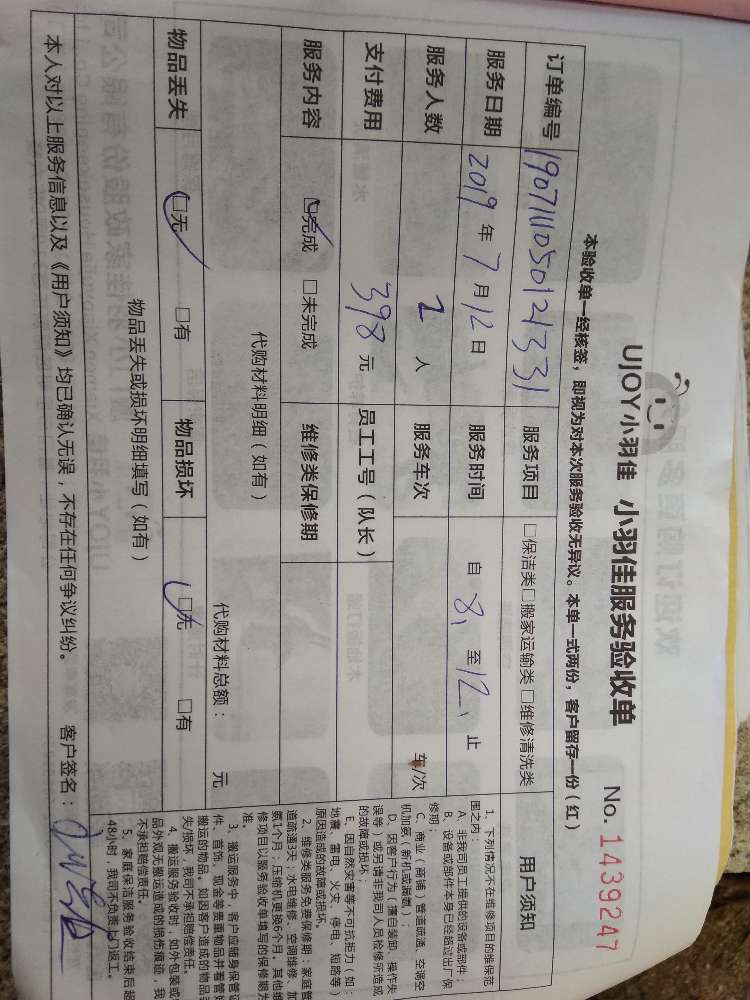 UJOY小羽佳 小羽佳服务验收单 No. 1439247
本验收单一经核签，即视为对本次服务验收无异议。本单一式两份，客户留存一份（红）
订单编号 服务项目 □保洁类□搬家运输类□维修清洗类 用户须知
服务日期 2019年7月12日 服务时间 自 8、 至 12、 止
服务人数 2 人 服务车次 车/次
支付费用 398 元 员工工号（队长）
服务内容 □完成 □未完成 维修类保修期
代购材料明细（如有） 代购材料总额： 元
物品丢失 □无 □有 物品损坏 □无 □有
物品丢失或损坏明细填写（如有）
本人对以上服务信息以及《用户须知》均已确认无误，不存在任何争议纠纷。 客户签名：
1、下列情况不在维修项目的维保范
围之内：
A、非我司员工提供的设备或部件；
B、设备或部件本身已经超过出厂保
修期；
C、商业（商铺）管道疏通、空调空
机加氨（新机或漏氨）；
D、因客户行为（擅自装卸、操作失
误等）或另请非我司人员检修所造成
的故障或损坏；
E、因自然灾害等不可抗拒力（如：
地震、雷电、火灾、停电、短路等）
原因造成的故障或损坏。
2、维修类服务免费保修期：家庭管
道疏通3天；水电维修、空调维修、加
氨1个月；压缩机更换6个月。其他维
修项目以服务验收单填写的保修期为
准。
3、搬运服务中，客户应随身保管证
件、首饰、现金等贵重物品并看管
搬运的物品。如因客户造成的物品
失/损坏，我司不承担赔偿责任。
4、搬运服务验收时，如外包装或
品外观无搬运造成的损伤痕迹，我
不承担赔偿责任。
5、家庭保洁服务验收结束后超
48小时，我司不负责上门返工。